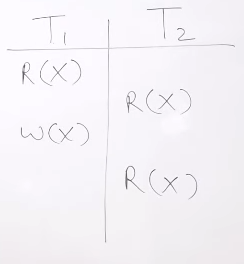 T1 T2
R(X)
R(X)
W(X)
R(X)